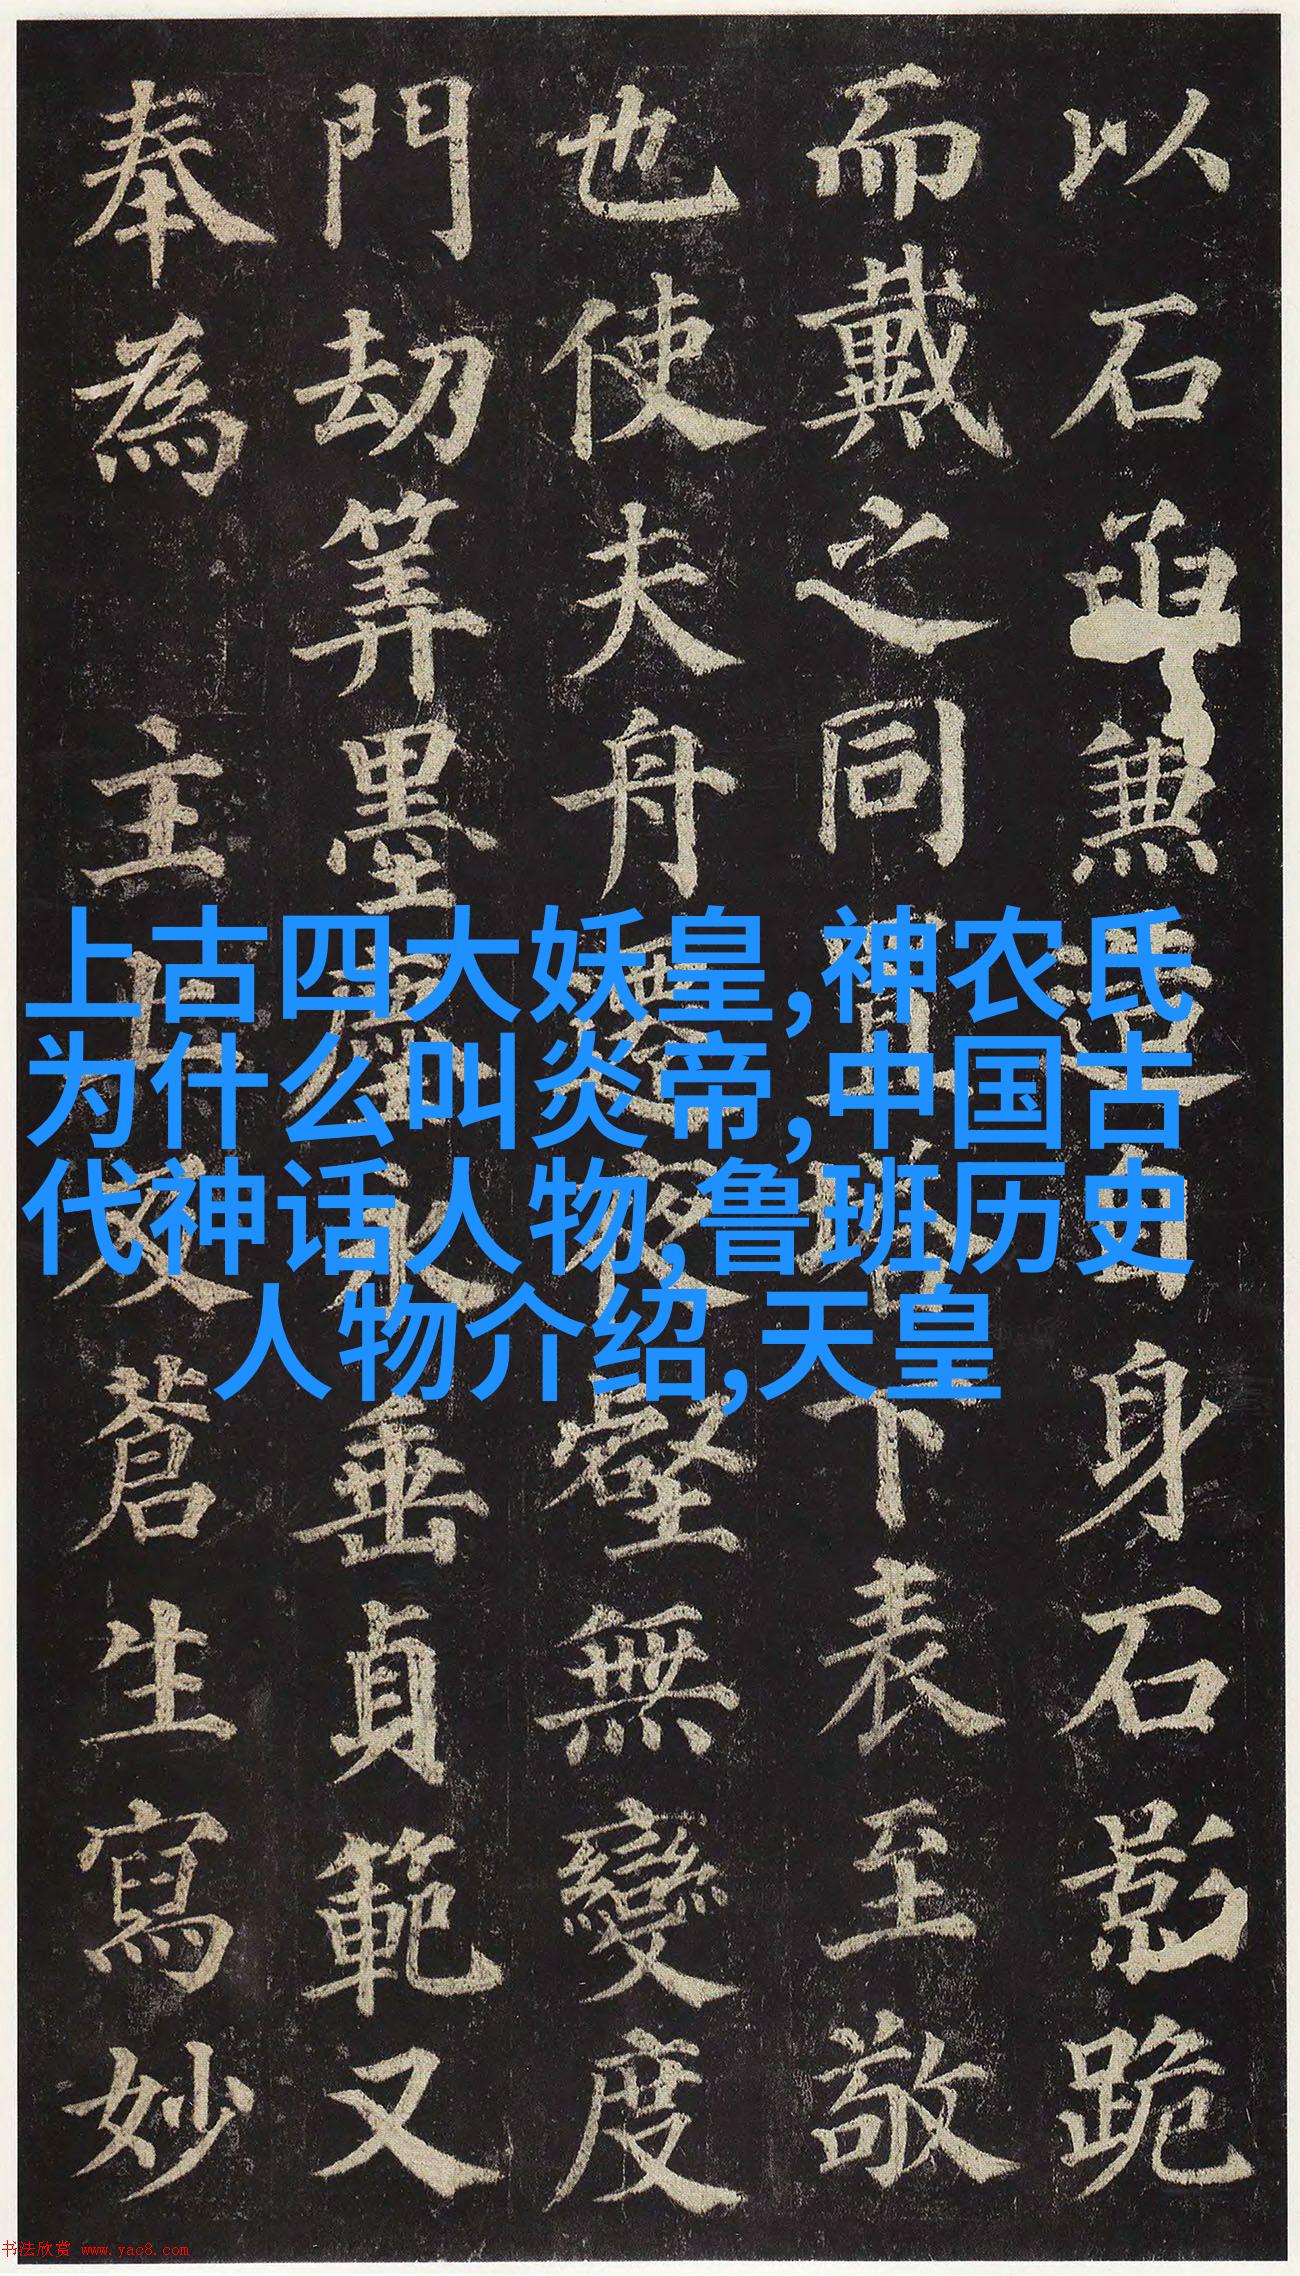 以石兼造自身石影跪
而戴之同置塔下表至敬
也使夫舟遷夜壑無變度
門劫筭墨塵永垂貞範又
奉為 主上及蒼生寫妙
上古四大妖皇,神农氏
为什么叫炎帝,中国古
代神话人物,鲁班历史
人物介绍,天皇
书法欣赏 www.yac8.com